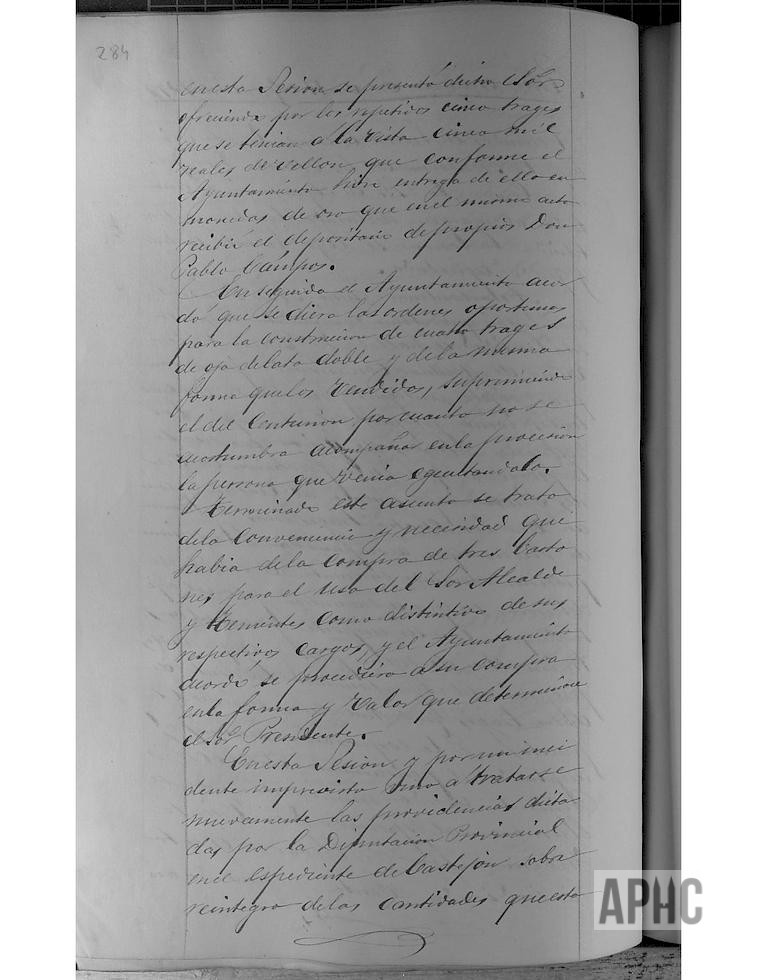 284
en esta Sesion se presentó dicho Sor
ofreciendo por los repetidos cinco trages
que se tenian a la vista cinco mil
reales de vellon, que conforme el
Ayuntamiento hizo entrega de ello en
monedas de oro que en el mismo acto
recibió el depositario de propios Don
Pablo Campos.
En seguida el Ayuntamiento acor
dó que se diera las ordenes oportunas
para la construccion de cuatro trages
de oja de lata doble y de la misma
forma que los vendidos, suprimiendo
el del Centurion por cuanto no se
acostumbra acompañar en la procesion
la persona que venia egecutandolo.
Terminado este asunto se trató
de la conveniencia y necesidad que
habia de la compra de tres basto
nes para el uso del Sor Alcalde
y Tenientes como distintivo de sus
respectivos cargos, y el Ayuntamiento
acordó se procediera a su compra
en la forma y valor que determinare
el Sor Presidente.
En esta Sesion y por un inci
dente imprevisto vino a tratarse
nuevamente las providencias dicta
das por la Diputacion Provincial
en el espediente de Castejon sobre
reintegro de las cantidades que esta
APHC